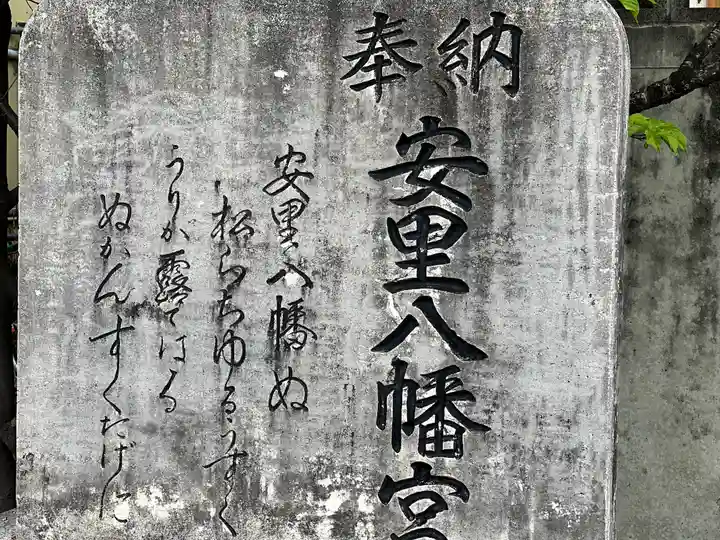 奉納
安里八幡宮
安里八幡ぬ
松らちゆるうすく
うりが露てはる
ぬかんすくたげに